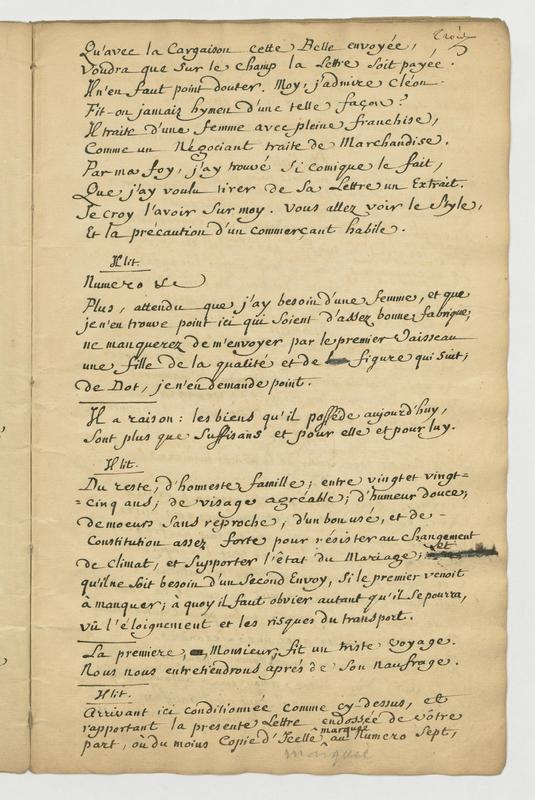 Qu'avec la Cargaison cette Belle envoyée,
Voudra que sur le champ la Lettre soit payée.
Il n'en faut point douter. Moy, j'admire cléon.
Fit-on jamais hymen d'une telle façon?
Il traite d'une femme avec pleine franchise,
Comme un Négociant traite de Marchandise.
Par ma foy, j'ay trouvé si comique le fait,
Que j'ay voulu tirer de sa Lettre un Extrait.
Je croy l'avoir sur moy. Vous allez voir le style,
Et la précaution d'un commerçant habile.
Il lit.
Numero &c
Plus, attendu que j'ay besoin d'une femme, et que
je n'en trouve point ici qui soient d'assez bonne fabrique,
ne manquerez de m'envoyer par le premier Vaisseau
une fille de la qualité et de figure qui suit;
de Dot, je n'en demande point.
Il a raison: les biens qu'il possède aujourd'huy,
sont plus que suffisans et pour elle et pour luy.
Il lit.
Du reste, d'honneste famille; entre vingt et vingt=
=cinq ans; de visage agréable; d'humeur douce;
de moeurs sans reproche, d'un bon usé, et de -
Constitution assez forte pour résister au changement
de Climat, et supporter l'état du Mariage; et
qu'il ne soit besoin d'un Second Envoy, si le premier venoit
à manquer; à quoy il faut obvier autant qu'il se pourra,
vû l'éloignement et les risques du transport.
La premiere, Monsieur, fit un triste voyage.
Nous nous entretiendrons aprés de son naufrage.
Il lit.
Arrivant ici conditionnée comme cy-dessus, et
rapportant la presente Lettre endossée de vôtre
part, ou du moins Copie d'Icelle marquée au Numero Sept,
marquée